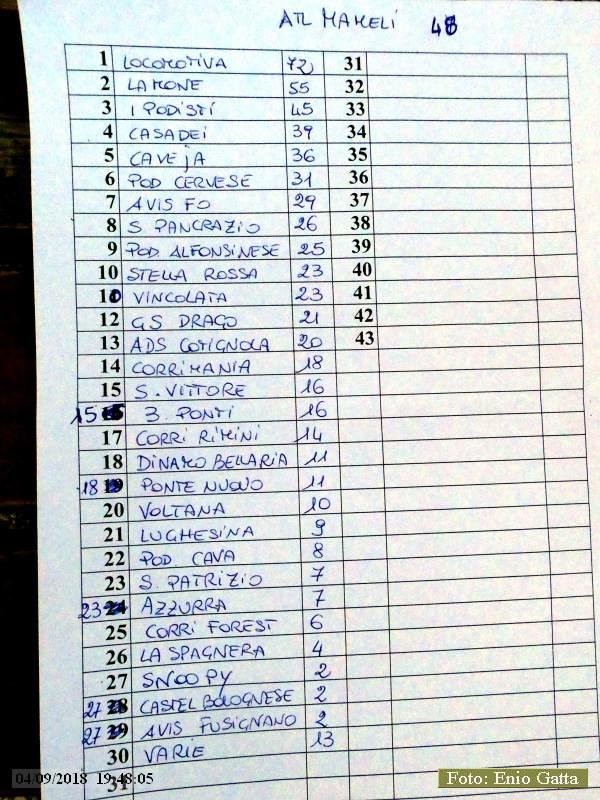 ATL MAMELI 48
1 LOCOMOTIVA 72 31
2 LAMONE 55 32
3 I PODISTI 45 33
4 CASADEI 39 34
5 CAVEJA 36 35
6 POD CERVESE 31 36
7 AVIS FO 29 37
8 S. PANCRAZIO 26 38
9 POD. ALFONSINESE 25 39
10 STELLA ROSSA 23 40
10 VINCOLATA 23 41
12 GS DRAGO 21 42
13 ADS COTIGNOLA 20 43
14 CORRIMANIA 18
15 S. VITTORE 16
15 3 PONTI 16
17 CORRI RIMINI 14
18 DINAMO BELLARIA 11
18 PONTE NUOVO 11
20 VOLTANA 10
21 LUGHESINA 9
22 POD. CAVA 8
23 S. PATRIZIO 7
23 AZZURRA 7
25 CORRI FOREST 6
26 LA SPAGNERA 4
27 SNOOPY 2
27 CASTEL BOLOGNESE 2
27 AVIS FUSIGNANO 2
30 VARIE 13
31
04/09/2018 19:48:05
Foto: Enio Gatta